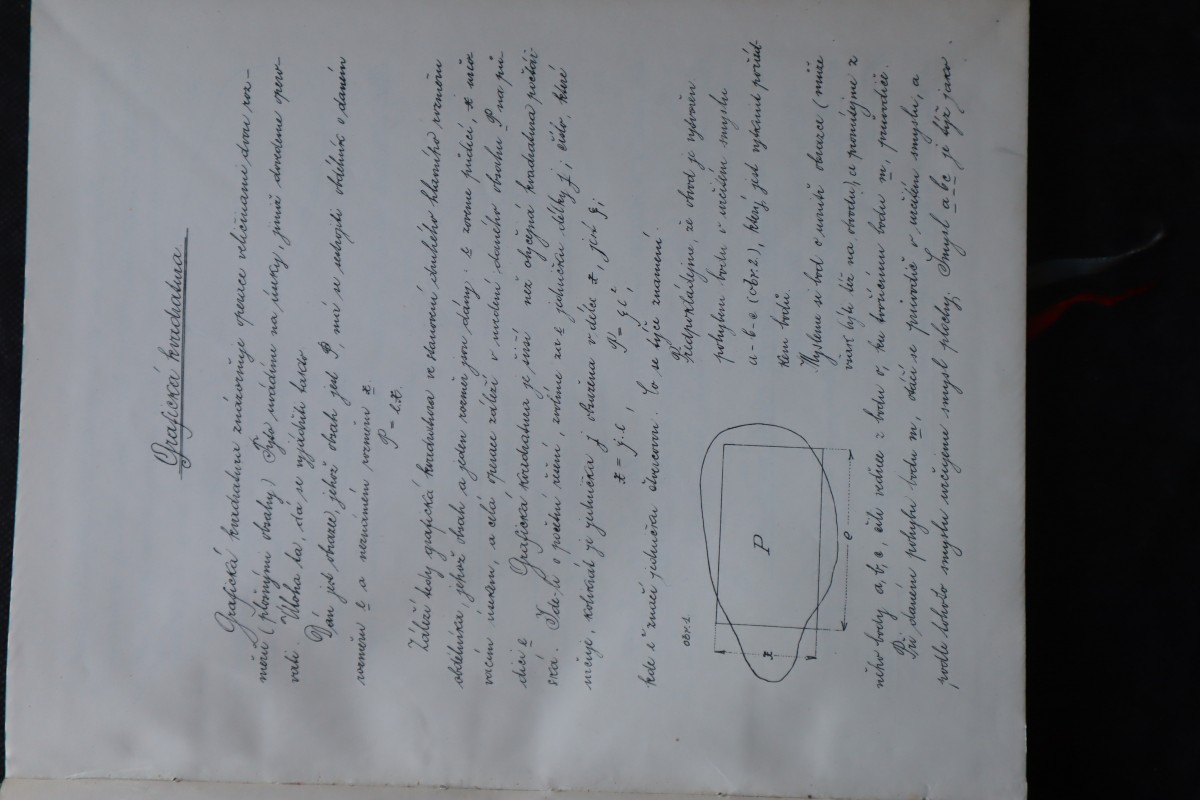 Grafická kvadratura
Grafická kvadratura znázorňuje operace veličinami dvou roz-
měrů (plošnými obsahy). Tyto uvádíme na úsečky, jimiž dovedeme opero-
vati. Úloha ta, dá se vyjádřiti takto:
Dán jest obrazec, jehož obsah jest P, má se sestrojiti obdélník o daném
rozměru l a neznámém rozměru x.
P = l.x.
Záleží tedy grafická kvadratura ve stanovení druhého hlavního rozměru
obdélníka, jehož obsah a jeden rozměr jsou dány. l zoveme řídící, x
úsekem, a celá operace záleží v uvedení daného obsahu P na
řídící l. Grafická kvadratura je širší než obyčejná kvadratura
. Jde-li o početní řešení, zvolíme za l jedničku délky j; číslo, které
určuje, kolikrát je jednička j obsažena v délce x, jest q;
x = q.l P = q l²,
kde l² značí jedničku čtvercovou. Co se týče znamení.
obr. 1.
P
x
Předpokládejme, že obvod je vytvořen
pohybem bodu v určitém smyslu
a-b-c (obr. 2.), který jest vytknut pořád-
kem bodů.
Mysleme si bod o uvnitř obrazce (může
ovšem býti též na obvodu) a promítejme z
něho body a, b, c, čili veďme z bodu o, ku tvořícímu bodu m, průvodič.
Při daném pohybu bodu m, otáčí se průvodič v určitém smyslu, a
podle tohoto smyslu určujeme smysl plochy. Smysl a b c je týž jako